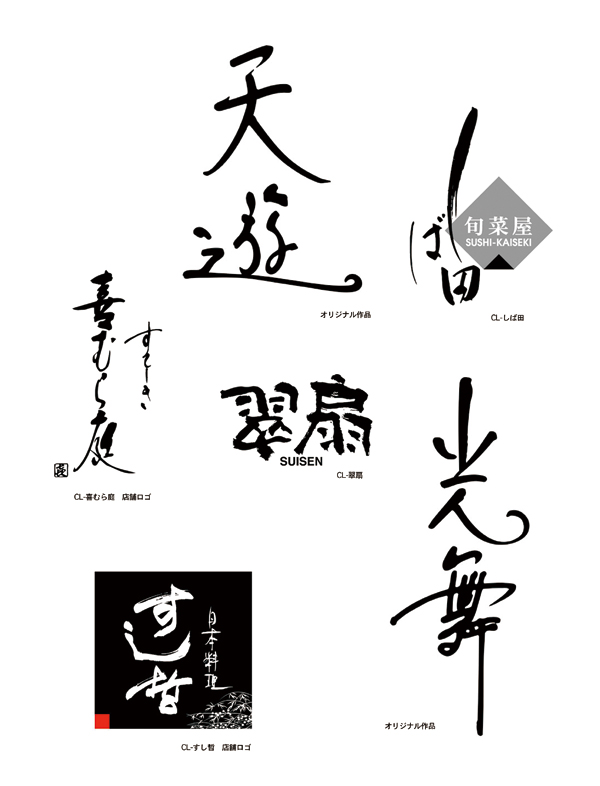 天遊
オリジナル作品
しば田
旬菜屋
SUSHI-KAISEKI
CL-しば田
すてーき
喜むら庭
CL-喜むら庭　店舗ロゴ
翠扇
SUISEN
CL-翠扇
光舞
オリジナル作品
日本料理
すし哲
CL-すし哲　店舗ロゴ